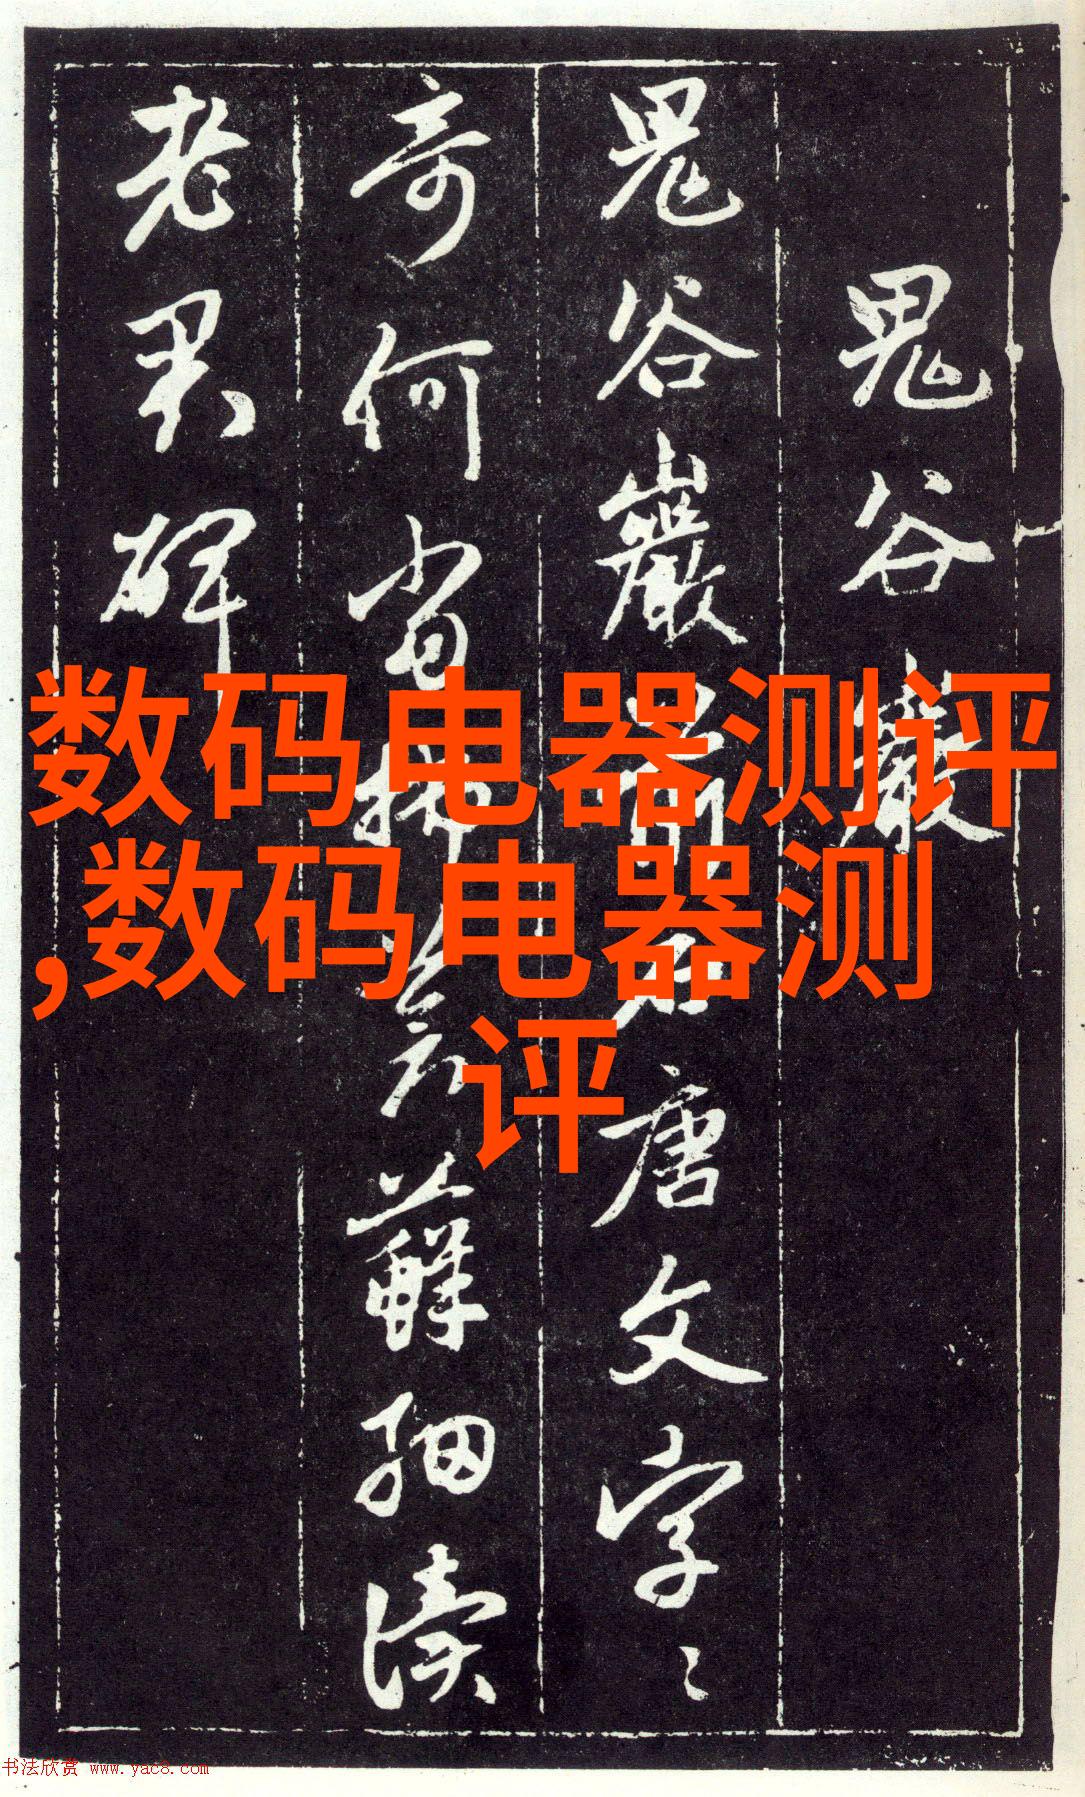 鬼谷巖
鬼谷巖唐文字〻
奇何當蘚細讀
老君碑
数码电器测评
,数码电器测
评
书法欣赏 www.yac8.com